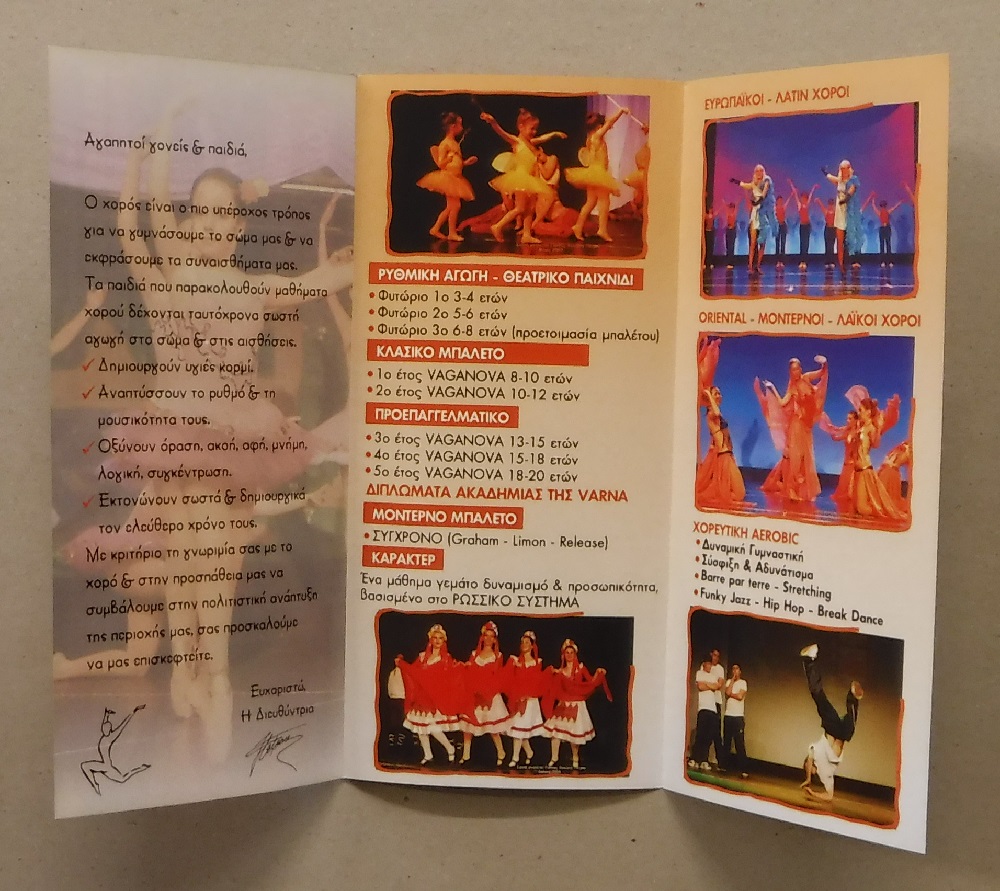 Αγαπητοί γονείς & παιδιά,
Ο χορός είναι ο πιο υπέροχος τρόπος
για να γυμνάσουμε το σώμα μας & να
εκφράσουμε τα συναισθήματα μας.
Τα παιδιά που παρακολουθούν μαθήματα
χορού δέχονται ταυτόχρονα σωστή
αγωγή στο σώμα & στις αισθήσεις.
✓ Δημιουργούν υγιές κορμί.
✓ Αναπτύσσουν το ρυθμό & τη
μουσικότητα τους.
✓ Οξύνουν όραση, ακοή, αφή, μνήμη,
λογική, συγκέντρωση.
✓ Εκτονώνουν σωστά & δημιουργικά
τον ελεύθερο χρόνο τους.
Με κριτήριο τη γνωριμία σας με το
χορό & στην προσπάθεια μας να
συμβάλουμε στην πολιτιστική ανάπτυξη
της περιοχής μας, σας προσκαλούμε
να μας επισκεφτείτε.
Ευχαριστώ,
Η Διευθύντρια
ΡΥΘΜΙΚΗ ΑΓΩΓΗ - ΘΕΑΤΡΙΚΟ ΠΑΙΧΝΙΔΙ
• Φυτώριο 1ο 3-4 ετών
• Φυτώριο 2ο 5-6 ετών
• Φυτώριο 3ο 6-8 ετών (προετοιμασία μπαλέτου)
ΚΛΑΣΙΚΟ ΜΠΑΛΕΤΟ
• 1ο έτος VAGANOVA 8-10 ετών
• 2ο έτος VAGANOVA 10-12 ετών
ΠΡΟΕΠΑΓΓΕΛΜΑΤΙΚΟ
• 3ο έτος VAGANOVA 13-15 ετών
• 4ο έτος VAGANOVA 15-18 ετών
• 5ο έτος VAGANOVA 18-20 ετών
ΔΙΠΛΩΜΑΤΑ ΑΚΑΔΗΜΙΑΣ ΤΗΣ VARNA
ΜΟΝΤΕΡΝΟ ΜΠΑΛΕΤΟ
• ΣΥΓΧΡΟΝΟ (Graham - Limon - Release)
ΚΑΡΑΚΤΕΡ
Ένα μάθημα γεμάτο δυναμισμό & προσωπικότητα,
βασισμένο στο ΡΩΣΣΙΚΟ ΣΥΣΤΗΜΑ
ΕΥΡΩΠΑΪΚΟΙ - ΛΑΤΙΝ ΧΟΡΟΙ
ORIENTAL - ΜΟΝΤΕΡΝΟΙ - ΛΑΪΚΟΙ ΧΟΡΟΙ
ΧΟΡΕΥΤΙΚΗ AEROBIC
• Δυναμική Γυμναστική
• Σύσφιξη & Αδυνάτισμα
• Barre par terre - Stretching
• Funky Jazz - Hip Hop - Break Dance